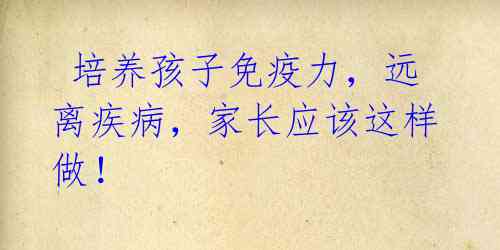 培养孩子免疫力，远
离疾病，家长应该这样
做！